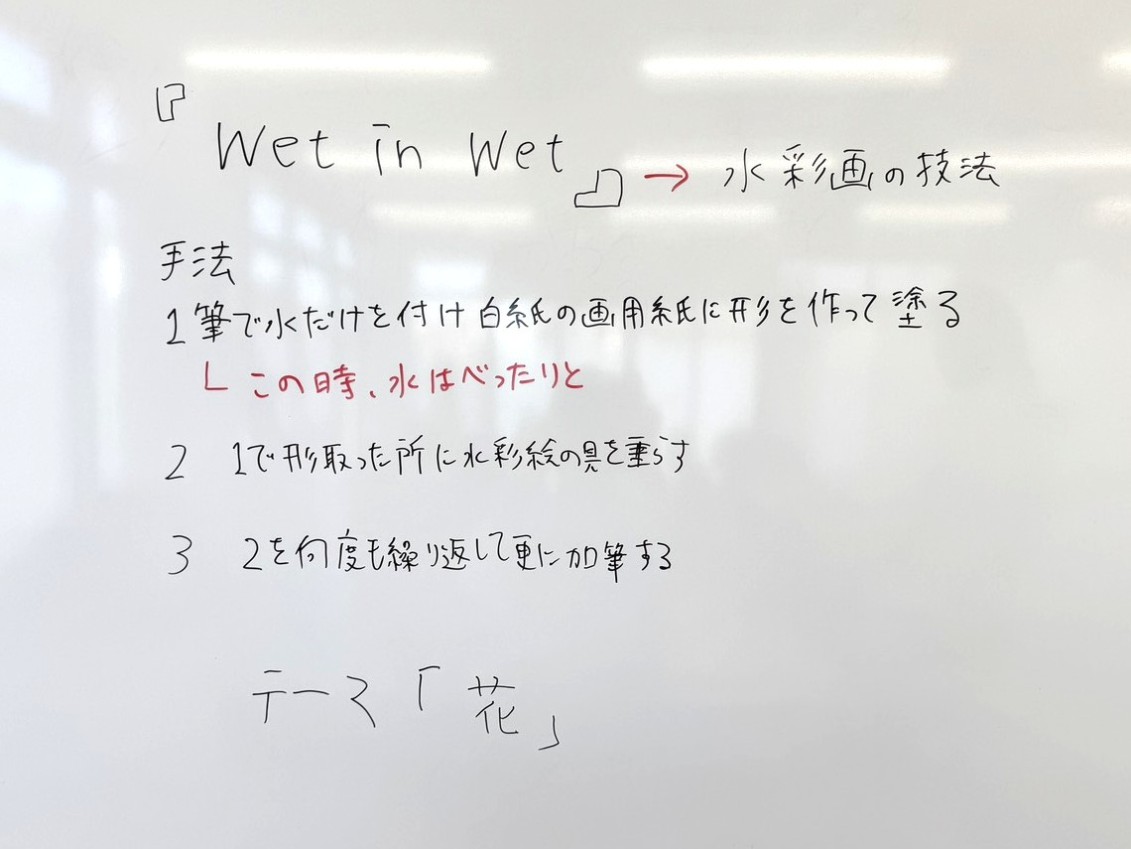 『Wet in Wet』→水彩画の技法
手法
1 筆で水だけを付け白紙の画用紙に形を作って塗る
└ この時、水はべったりと
2 1で形取った所に水彩絵の具を垂らす
3 2を何度も繰り返して更に加筆する
テーマ「花」